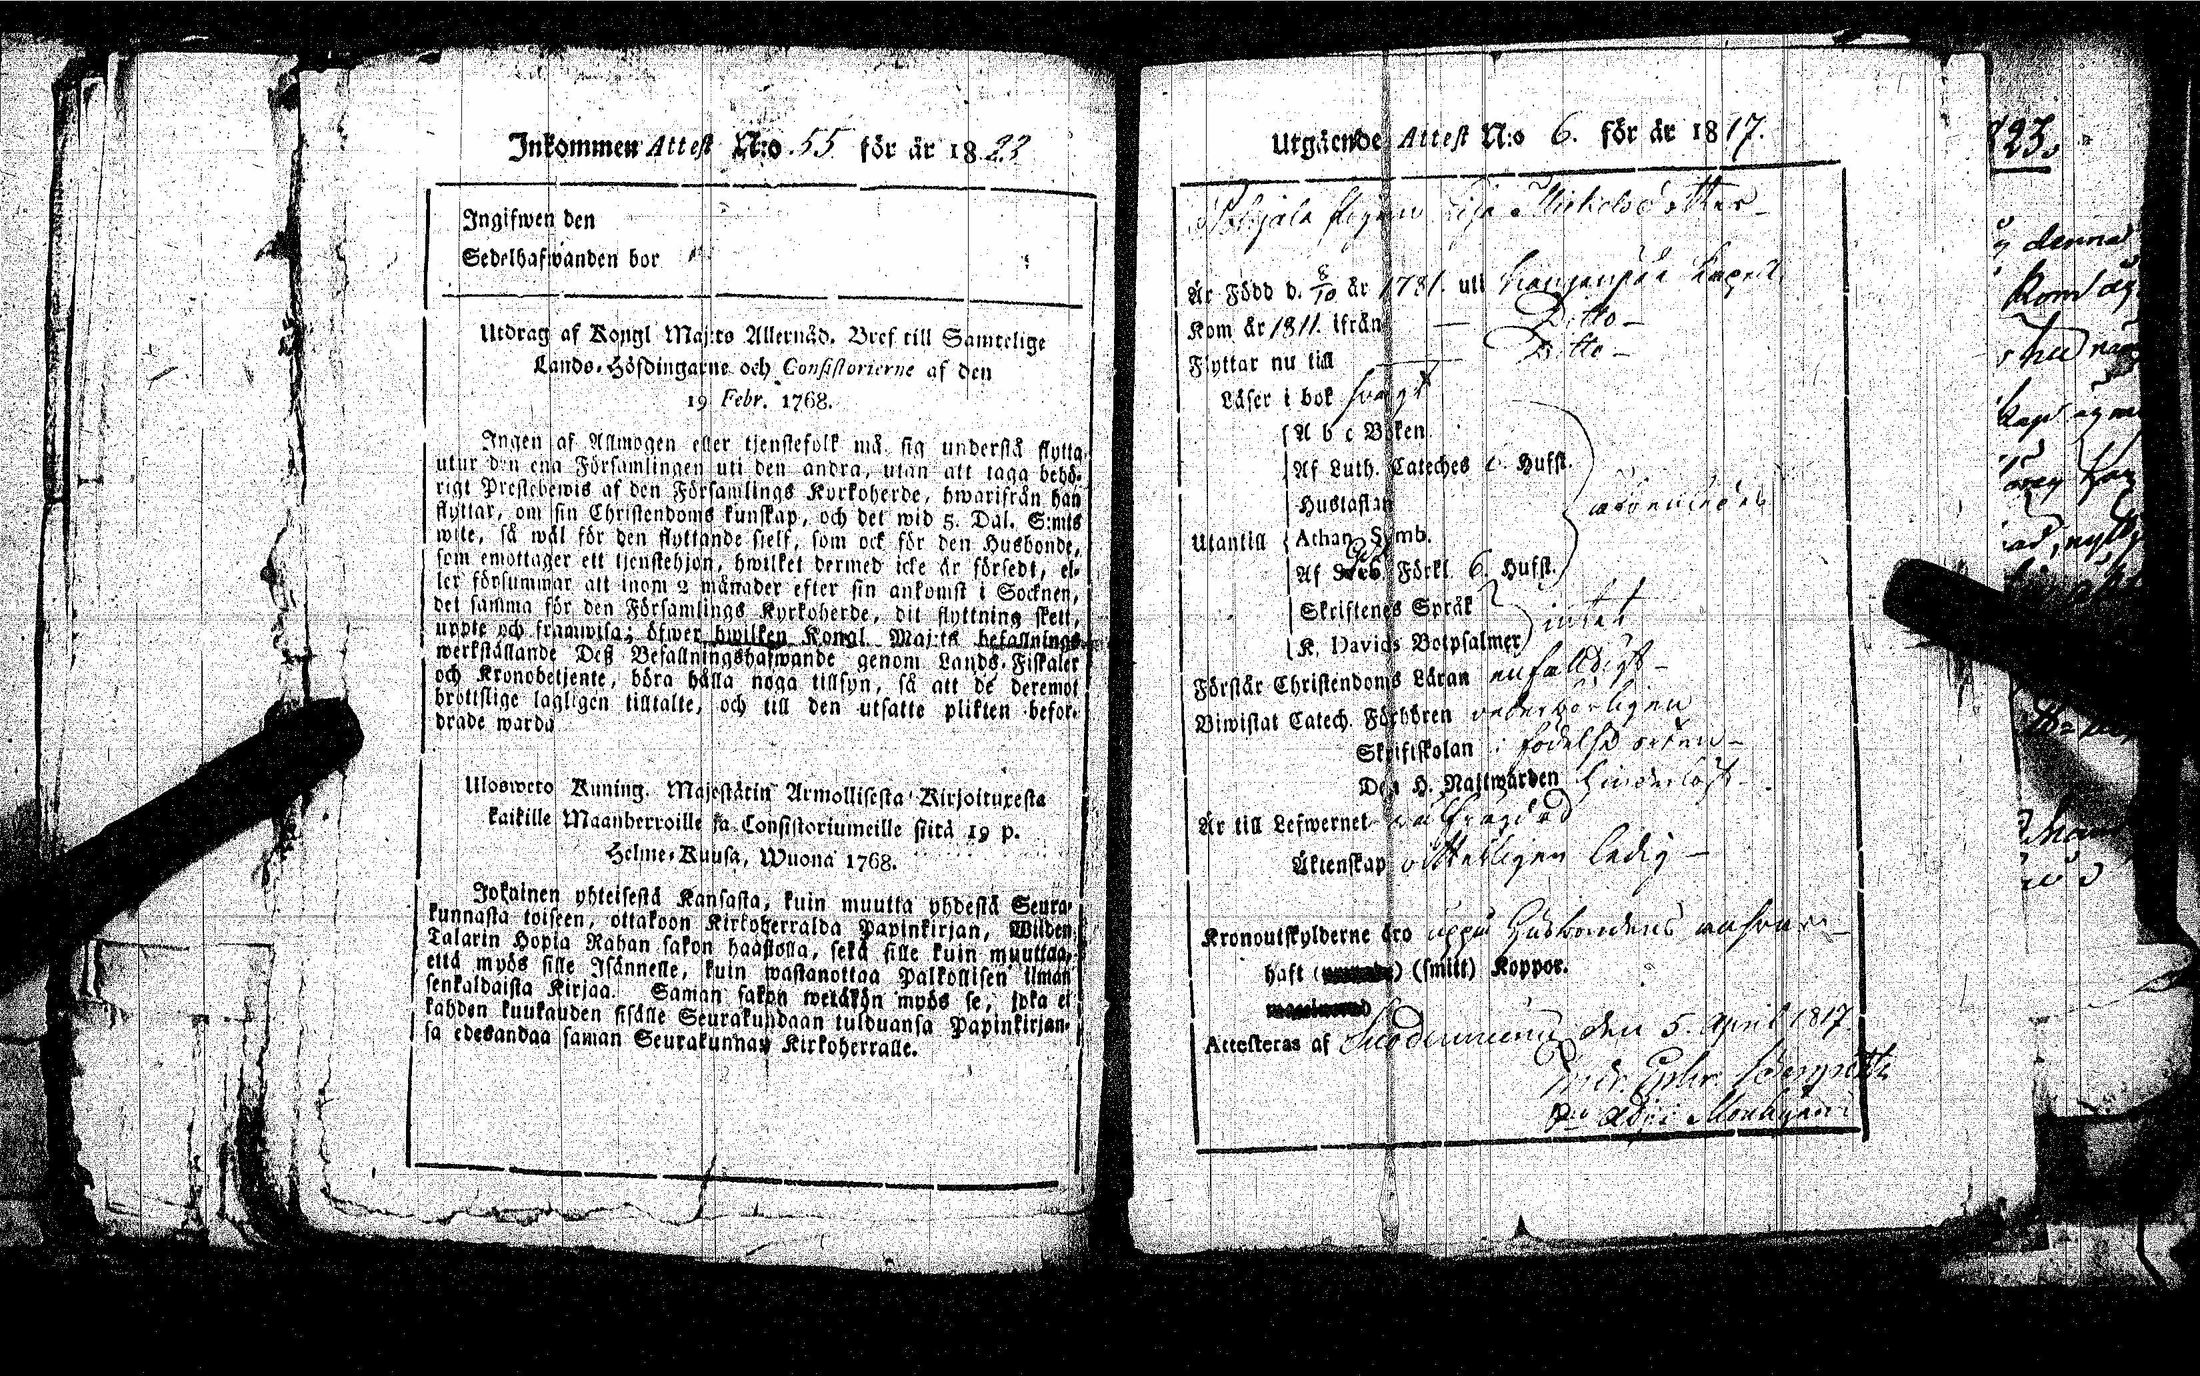 Inkommen Attest N:o 55 för år 1823
Ingifwen den
Sedelhafwanden bor
Utdrag af Kongl Maj:ts Allernåd. Bref till Samtelige
Lands-Höfdingarne och Consistorierne af den
19 Febr. 1768.
Ingen af Allmogen eller tjenstefolk må sig understå flytta
utur den ena Församlingen uti den andra, utan att taga behö-
rigt Prestebewis af den Församlings Kyrkoherde, hwarifrån han
flyttar, om sin Christendoms kunskap, och det wid 5. Dal. S:mts
wite, så wäl för den flyttande sielf, som ock för den Husbonde,
som emottager ett tjenstehjon, hwilket dermed icke är försedt, el-
ler försummar att inom 2 månader efter sin ankomst i Socknen,
det samma för den Församlings Kyrkoherde, dit flyttning skett,
uppte och framwisa; öfwer hwilken Kongl. Maj:ts befallnings
werkställande Deß Befallningshafwande genom Lands-Fiskaler
och Kronobetjente, böra hålla noga tillsyn, så att de deremot
brottslige lagligen tilltalte, och till den utsatte plikten befor-
drade warda
Ulosweto Kuning. Majestätin Armollisesta Kirjoituxesta
kaikille Maanherroille ja Consistoriumeille siitä 19 p.
Helme-Kuusa, Wuona 1768.
Jokainen yhteisestä Kansasta, kuin muutta yhdestä Seura-
kunnasta toiseen, ottakoon Kirkoherralda Papinkirjan, Wiiden
Talarin Hopia Rahan sakon haastolla, sekä sille kuin muuttaa,
että myös sille Isännelle, kuin wastanottaa Palkollisen ilman
senkaldaista Kirjaa. Saman sakon wetäkön myös se, joka ei
kahden kuukauden sisälle Seurakundaan tulduansa Papinkirjan-
sa edesandaa saman Seurakunnan Kirkoherralle.
Utgående Attest N:o 6. för år 1817.
Pohjala Michelsdotter
Är Född d. 8/10 år 1781. uti Kapell
Kom år 1811. ifrån — Ditto —
Flyttar nu till — Ditto —
Läser i bok svagt
A b c Boken
Af Luth. Cateches 6. Hufst.
Hustaflan
Utantill Athan. Symb.
Af Förkl. 6. Hufst.
Skriftenes Språk
K. Davids Botpsalmer intet
Förstår Christendoms Läran enfaldigt —
Biwistat Catech. Förhören wederbörligen
Skriftskolan i födelse orten —
Den H. Nattwarden hinderlöst —
Är till Lefwernet wälfrägdad
Äktenskap witterligen ledig —
Kronoutskylderne äro uppå Husbondens answar —
haft (smitt) Koppor.
Attesteras af den 5. April 1817.